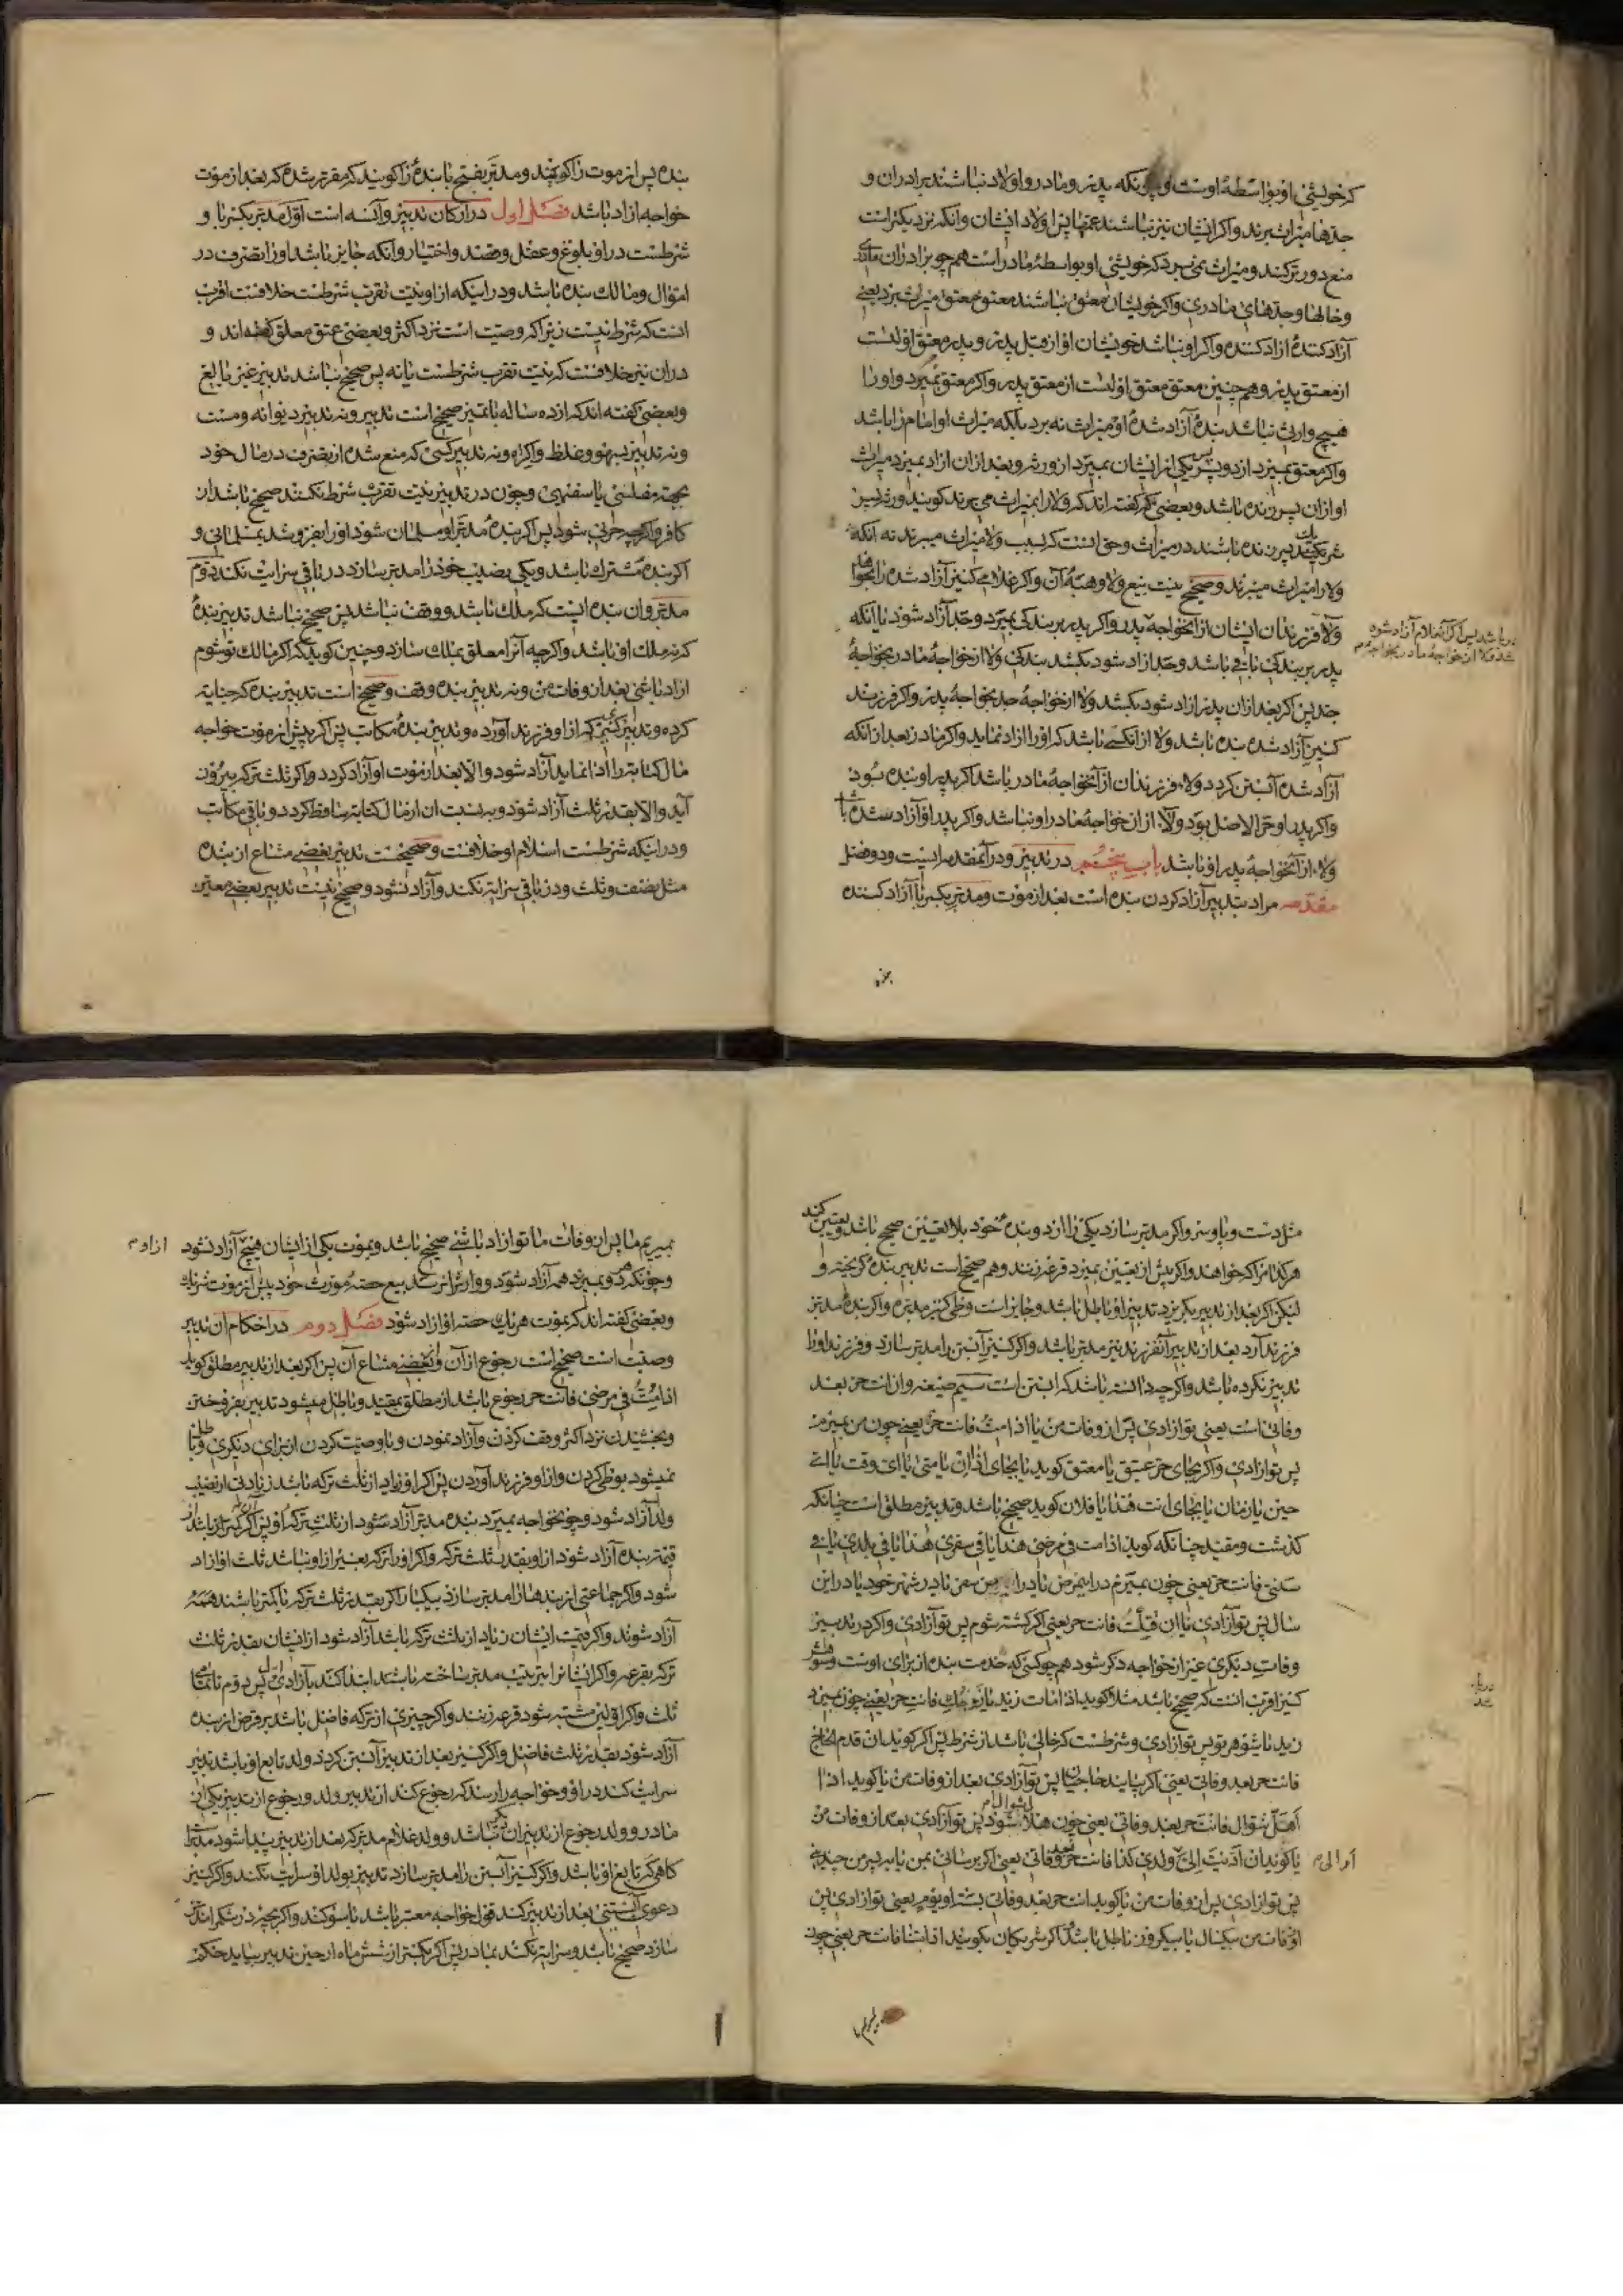 که خویشی او بواسطهٔ اوست و چونکه پدر و مادر و اولاد نباشند برادران و
جدها میراث برند و اکر ایشان نیز نباشند عمها پس اولاد ایشان و آنکه نزدیکتراست
منع دورتر کند و میراث نمی برد که خویشی او بواسطهٔ مادر است همچو برادران مادری
و خالها و جدهای مادری و اکر خویشان معتق نباشند معتق معتق میراث برد یعنی
آزاد کنندهٔ آزاد کننده و اکر او نباشد خویشان او از قبل پدر و پدر معتق اولیست
از معتق پدر و همچنین معتق معتق اولیست از معتق پدر و اکر معتق بمیرد و او را
هیچ وارث نباشد بندهٔ آزاد شدهٔ او میراث نه برد بلکه میراث او امام را باشد
و اکر معتق بمیرد از دو پسر پس یکی از ایشان بمیرد از ورثه و بعد از آن آزاد بمیرد میراث
او از آن پسر زنده باشد و بعضی که کفته اند که ولا را بمیراث می برند کویند ورثه پسر
شریک پسر زنده باشند در میراث و حق آنست که بسبب ولا میراث میبرند نه آنکه
ولا را میراث میبرند و صحیح نیست بیع ولا و هبهٔ آن و اکر غلامی کنیز آزاد شده را بخواهد
ولا فرزندان ایشان از آن خواجه
در باشد پس اکر آن غلام آزاد شود
پدر بر بندکی باقی باشد و جد آزاد شود بکشد بندکی ولا از خواجهٔ مادر بخواجهٔ
جد پس اکر بعد از آن پدر آزاد شود بکشد ولا از خواجهٔ جد بخواجهٔ پدر و اکر فرزند
کنیز آزاد شده بنده باشد ولا از آنکسی باشد که او را آزاد نماید و اکر مادر بعد از آنکه
آزاد شده آبستن کردد ولاء فرزندان از آن خواجهٔ مادر باشد اکر پدر او بنده بود
و اکر پدر او حر الاصل بود ولاء از آن خواجهٔ مادر او نباشد و اکر پدر او آزاد شده باشد
ولاء از آن خواجهٔ پدر او باشد باب پنجم در تدبیر و در آن مقدمه ایست و دو فصل
مقدمه مراد بتدبیر آزاد کردن بنده است بعد از موت و مدبر بکسر با آزاد کننده
بنده پس از موت را کویند و مدبر بفتح با بندهٔ را کویند که مقرر شده که بعد از موت
خواجه آزاد باشد فصل اول در ارکان تدبیر و آن سه است اول مدبر بکسر با و
شرطست در او بلوغ و عقل و قصد و اختیار و آنکه جایز باشد او را تصرف در
اموال و مالک بنده باشد و در اینکه از او نیت تقرب شرطست خلافست اقرب
آنست که شرط نیست زیرا که وصیت است نزد اکثر و بعضی عتق معلق کفته اند و
در آن نیز خلافست که نیت تقرب شرطست یا نه پس صحیح نباشد تدبیر غیر بالغ
و بعضی کفته اند که از ده ساله با تمیز صحیح است تدبیر و نه تدبیر دیوانه و مست
و نه تدبیر بسهو و غلط و اکراه و نه تدبیر کسی که منع شده از تصرف در مال خود
بجهة مفلسی یا سفیهی و چون در تدبیر نیت تقرب شرط نکنند صحیح باشد از
کافر و اکرچه حربی شود پس اکر بندهٔ مدبر او مسلمان شود او را بفروشند بمسلمانی و
اکر بنده مشترک باشد و یکی نصیب خود را مدبر سازد در باقی سرایت نکند دوم
مدبر و آن بنده ایست که ملک باشد و وقف نباشد پس صحیح نباشد تدبیر بندهٔ
که در ملک او نباشد و اکرچه آنرا معلق بملک سازد و چنین کوید که اکر مالک تو شوم
آزاد باشی بعد از وفات من و نه تدبیر بنده وقف و صحیح است تدبیر بنده که جنایة
کرده و تدبیر کنیز که از او فرزند آورده و تدبیر بندهٔ مکاتب پس اکر پیش از موت خواجه
مال کتابة را ادا نماید آزاد شود و الا بعد از موت او آزاد کردد و اکر ثلث ترکه بیرون
آید و الا بقدر ثلث آزاد شود و بنسبت آن از مال کتابة ساقط کردد و باقی مکاتب
و در اینکه شرطست اسلام او خلافست و صحیحست تدبیر بعضی مشاع از بنده
مثل نصف و ثلث و در باقی سرایة نکند و آزاد نشود و صحیح نیست تدبیر بعضی معین
مثل دست و پا و سر و اکر مدبر سازد یکی را از دو بندهٔ خود بلا تعیین صحیح باشد و تعیین کند
هر کدام را که خواهد و اکر پیش از تعیین بمیرد قرعه زنند و هم صحیح است تدبیر بندهٔ کریخته و
لیکن اکر بعد از تدبیر بکریزد تدبیر او باطل باشد و جایز است وطی کنیز مدبره و اکر بندهٔ مدبر
فرزند آرد بعد از تدبیر آن فرزند نیز مدبر باشد و اکر کنیز آبستن را مدبر سازد و فرزند او را
تدبیر نکرده باشد و اکرچه دانسته باشد که آبستن است سیم صیغه و آن انت حر بعد
وفاتی است یعنی تو آزادی پس از وفات من یا اذا مت فانت حر یعنی چون من بمیرم
پس تو آزادی و اکر بجای حر عتیق یا معتق کوید یا بجای اذا ان یا متی یا ای وقت یا ای
حین یا زمان یا بجای انت هذا یا فلان کوید صحیح باشد و تدبیر مطلق است چنانکه
کذشت و مقید چنانکه کوید اذا مت فی مرضی هذا یا فی سفری هذا یا فی بلدی یا فی
سنتی فانت حر یعنی چون بمیرم در این مرض یا در این سفر یا در شهر خود یا در این
سال پس تو آزادی یا ان قتلت فانت حر یعنی اکر کشته شوم پس تو آزادی و اکر در تدبیر
وفات دیکری غیر از خواجه ذکر شود همچو کسی که خدمت بنده از برای اوست و شوهر
کنیز اقرب آنست که صحیح باشد مثلا کوید اذا مات زید یا زوجک فانت حر یعنی چون بمیرد
زید یا شوهر تو پس تو آزادی و شرطست که خالی باشد از شرط پس اکر کوید ان قدم الحاج
فانت حر بعد وفاتی یعنی اکر بیایند حاجیان پس تو آزادی بعد از وفات من یا کوید اذا
اهل شوال فانت حر بعد وفاتی یعنی چون هلال شوال شود پس تو آزادی بعد از وفات من
یا کوید ان ادیت الی ولدی کذا فانت حر بعد وفاتی یعنی اکر برسانی بمن یا به پسر من چیزی
پس تو آزادی پس از وفات من یا کوید انت حر بعد وفاتی بسنة او یوم یعنی تو آزادی پس
از وفات من بیکسال یا بیکروز باطل باشد و اکر شریکان بکویند اذا متنا فانت حر یعنی چون
بمیریم ما پس از وفات ما تو آزاد باشی صحیح باشد و بموت یکی از ایشان هیچ آزاد نشود
و چونکه هر دو بمیرند همه آزاد شود و وارث را نرسد بیع حصهٔ مورث خود پیش از موت شریک
و بعضی کفته اند که بموت هر یک حصه او آزاد شود فصل دوم در احکام آن تدبیر
وصیت است صحیح است رجوع از آن و از بعضی مشاع آن پس اکر بعد از تدبیر مطلق کوید
اذا مت فی مرضی فانت حر رجوع باشد از مطلق بمقید و باطل میشود تدبیر بفروختن
و بخشیدن نزد اکثر و وقف کردن و آزاد نمودن و یا وصیت کردن از برای دیکری و باطل
نمیشود بوطی کردن و از او فرزند آوردن پس اکر او زیاد از ثلث ترکه باشد زیادتی از نصیب
ولد آزاد شود و چونخواجه بمیرد بندهٔ مدبر آزاد شود از ثلث ترکهٔ او پس اکر کمتر از باشد از
قیمت بنده آزاد شود از او بقدر ثلث ترکه و اکر او را ترکه بغیر از او نباشد ثلث او آزاد
شود و اکر جماعتی از بندها را مدبر سازد بیکبار اکر بقدر ثلث ترکه یا کمتر باشند همه
آزاد شوند و اکر قیمت ایشان زیاد از ثلث ترکه باشد آزاد شود از ایشان بقدر ثلث
ترکه بقرعه و اکر ایشانرا بترتیب مدبر ساخته باشد ابتدا کند بآزادی اول پس دوم تا تمامی
ثلث و اکر اولین مشتبه شود قرعه زنند و اکر چیزی از ترکه فاضل باشد بر قرض از بنده
آزاد شود بقدر ثلث فاضل و اکر کنیز بعد از تدبیر آبستن کردد ولد تابع او باشد تدبیر
سرایت کند در او و خواجه را رسد که رجوع کند از تدبیر ولد و رجوع از تدبیر یکی از
مادر و ولد رجوع از تدبیر آن دیکر نباشد و ولد غلام مدبر که بعد از تدبیر پیدا شود مدبر است
کاهی که تابع او باشد و اکر کنیز آبستن را مدبر سازد تدبیر بولد او سرایت نکند و اکر کنیز
دعوی آبستنی بعد از تدبیر کند قول خواجه معتبر باشد با سوکند و اکر بچه در شکم را مدبر
سازد صحیح باشد و سرایة نکند بمادر پس اکر بکمتر از شش ماه از حین تدبیر بیاید حکم